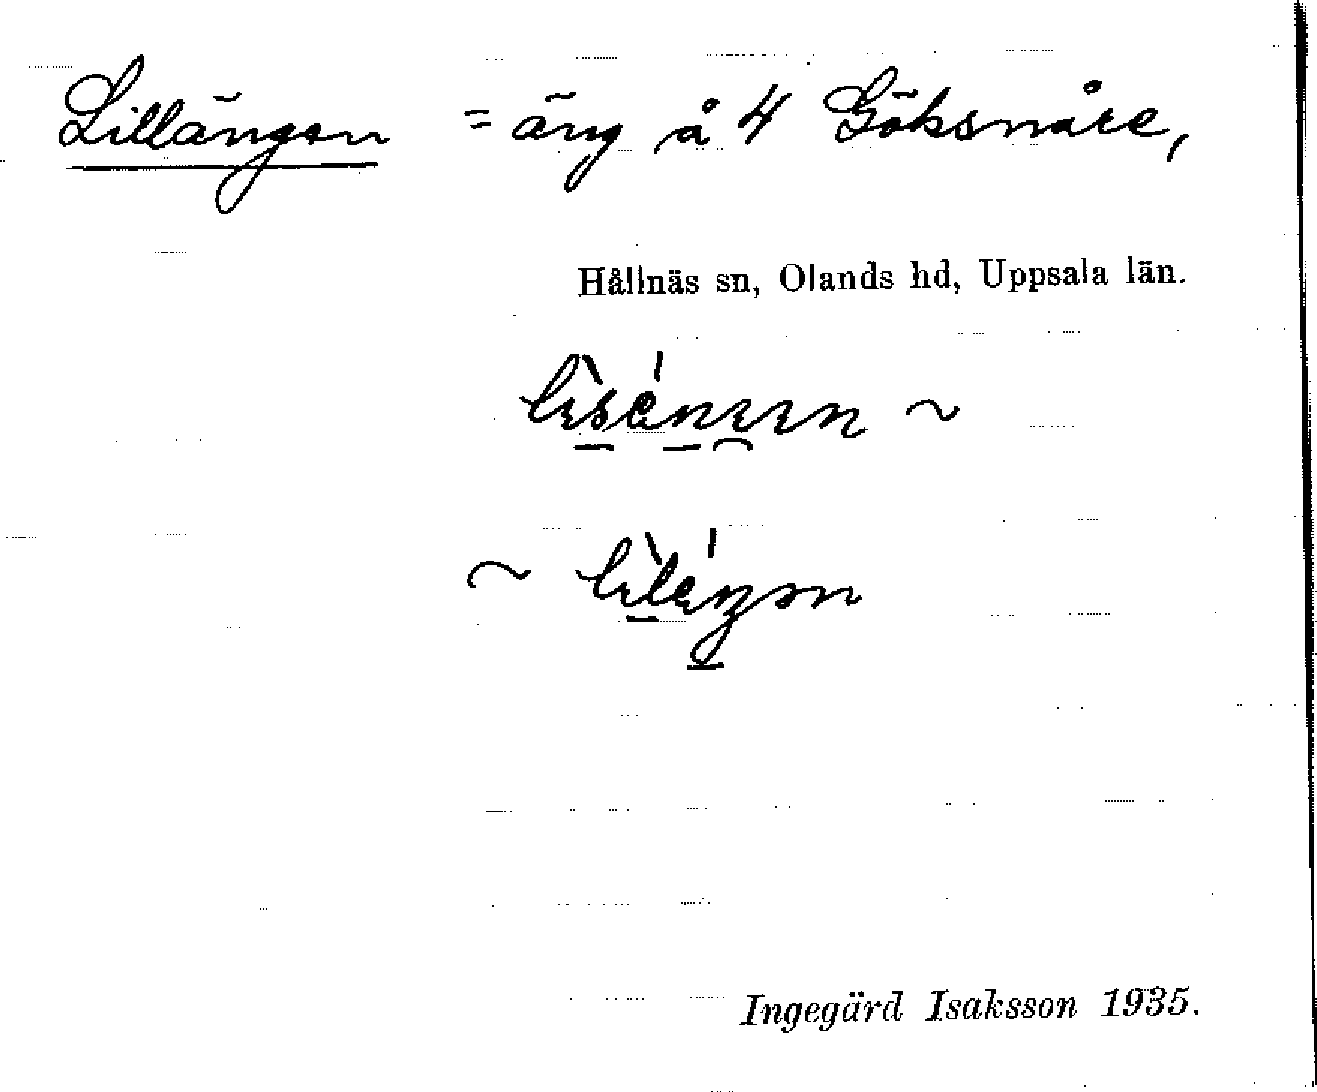 Lillängen = äng å 4 Göksnåre,
Hållnäs sn, Olands hd, Uppsala län.
Ingegärd Isaksson 1935.